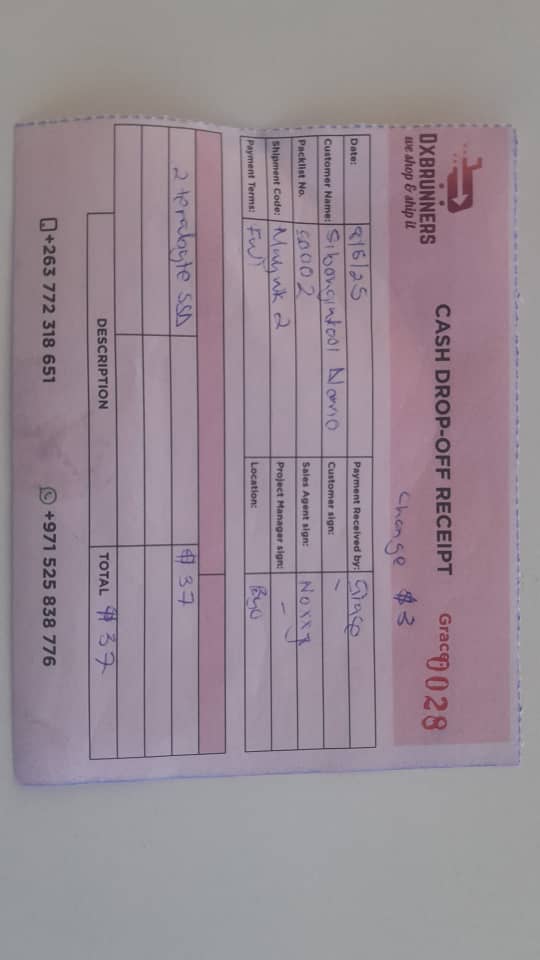 DXBRUNNERS
we shop & ship it
CASH DROP-OFF RECEIPT
Grace 0028
Change $3
Date: 8/6/25 Payment Received by: Grace
Customer Name: Customer sign: -
Packlist No. S0002 Sales Agent sign: Noxxy
Shipment Code: 2 Project Manager sign: -
Payment Terms: Full Location: Byo
2 terabyte SSD $37
DESCRIPTION TOTAL $37
+263 772 318 651 +971 525 838 776